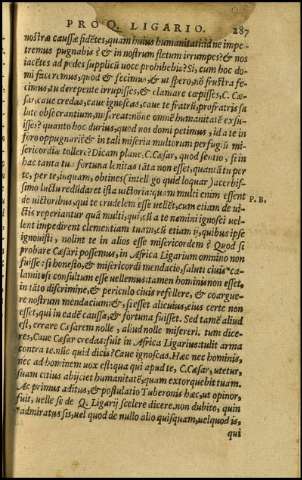 PRO Q. LIGARIO. 287
nostræ caussæ fidētes, quam huius humanitati: id ne impe-
tremus pugnabis? & in nostrum fletum irrumpes? & nos
iacētes ad pedes supplicū uoce prohibebis? Si, cum hoc do-
mi faceremus, quod & fecimus, & ut spero, nō frustra fe-
cimus, tu derepente irrupisses, & clamare cœpisses, C. Cæ-
sar, caue credas, caue ignoscas, caue te fratrū, pro fratris sa
lute obsecrantium, misereat: nōne omnē humanitatē exuis-
ses? quanto hoc durius, quod nos domi petimus, id a te in
foro oppugnari? & in tali miseria multorum perfugiū mi-
sericordiæ tollere? Dicam plane, C. Cæsar, quod sentio, si in
hac tanta tua fortuna lenitas tāta non esset, quantā tu per
te, per te, inquam, obtines (intelligo quid loquar) acerbis-
simo luctu redūdaret ista uictoria: quam multi enim essent P. B.
de uictoribus, qui te crudelem esse uellēt, cum etiam de ui-
ctis reperiantur? quā multi, qui, cū a te nemini ignosci uel-
lent, impedirent clementiam tuam, cū etiam ij, quibus ipse
ignouisti, nolint te in alios esse misericordem? Quod si
probare Cæsari possemus, in Africa Ligarium omnino non
fuisse: si honesto, & misericordi mendacio, saluti ciuis* ca-
lamitosi consultum esse uellemus: tamen hominis non esset,
in tāto discrimine, & periculo ciuis refellere, & coargue-
re nostrum mendacium: &, si esset alicuius, eius certe non
esset, qui in eadē caussa, & fortuna fuisset. Sed tamē aliud
est, errare Cæsarem nolle, aliud nolle misereri. tum dice-
res, Caue Cæsar credas: fuit in Africa Ligarius: tulit arma
contra te. nūc quid dicis? Caue ignoscas. Hæc nec hominis,
nec ad hominem uox est: qua qui apud te, C. Cæsar, utetur,
suam citius abijciet humanitatē, quam extorquebit tuam.
Ac primus aditus, & postulatio Tuberonis hæc, ut opinor,
fuit, uelle se de Q. Ligarij scelere dicere. non dubito, quin
admiratus sis, uel quod de nullo alio quisquam, uel quod is,
qui